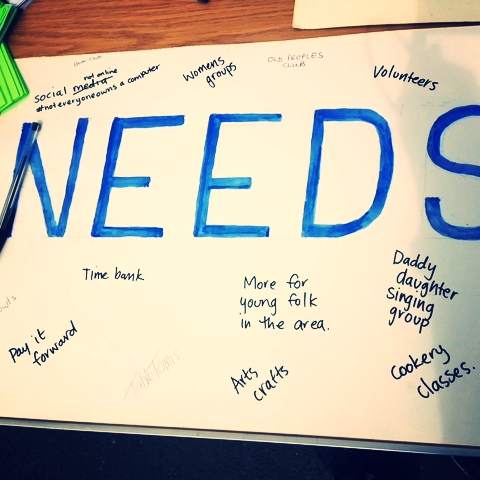 not online
social media
#noteveryoneowns a computer
Womens
groups
OLD PEOPLES
CLUB
Volunteers
NEEDS
Time bank
More for
young folk
in the area.
Daddy
daughter
singing
group
Pay it
forward
Arts
crafts
Cookery
classes.